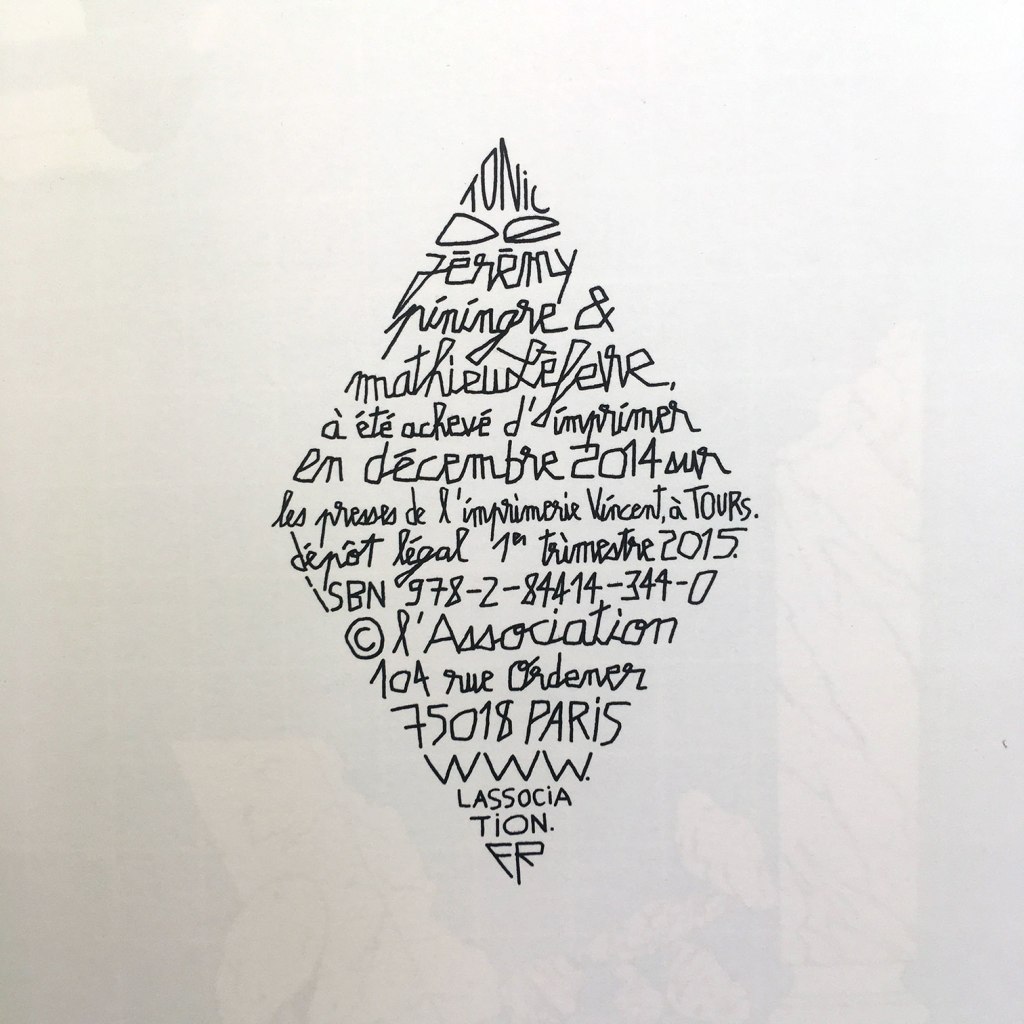 TONiC
De
Jérémy
piningre &
mathieu Léfevre,
à été achevé d'imprimer
en décembre 2014 sur
les presses de l'imprimerie Vincent, à TOURS.
dépôt légal 1er trimestre 2015.
iSBN 978-2-84414-344-0
© l'Association
104 rue Ordener
75018 PARiS
WWW.
LASSOCiA
TiON.
FR